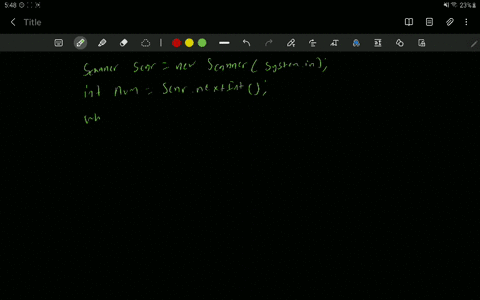 5:48
23%
Title
Scanner scnr = new Scanner( System.in);
int num = scnr.nextInt();
wh